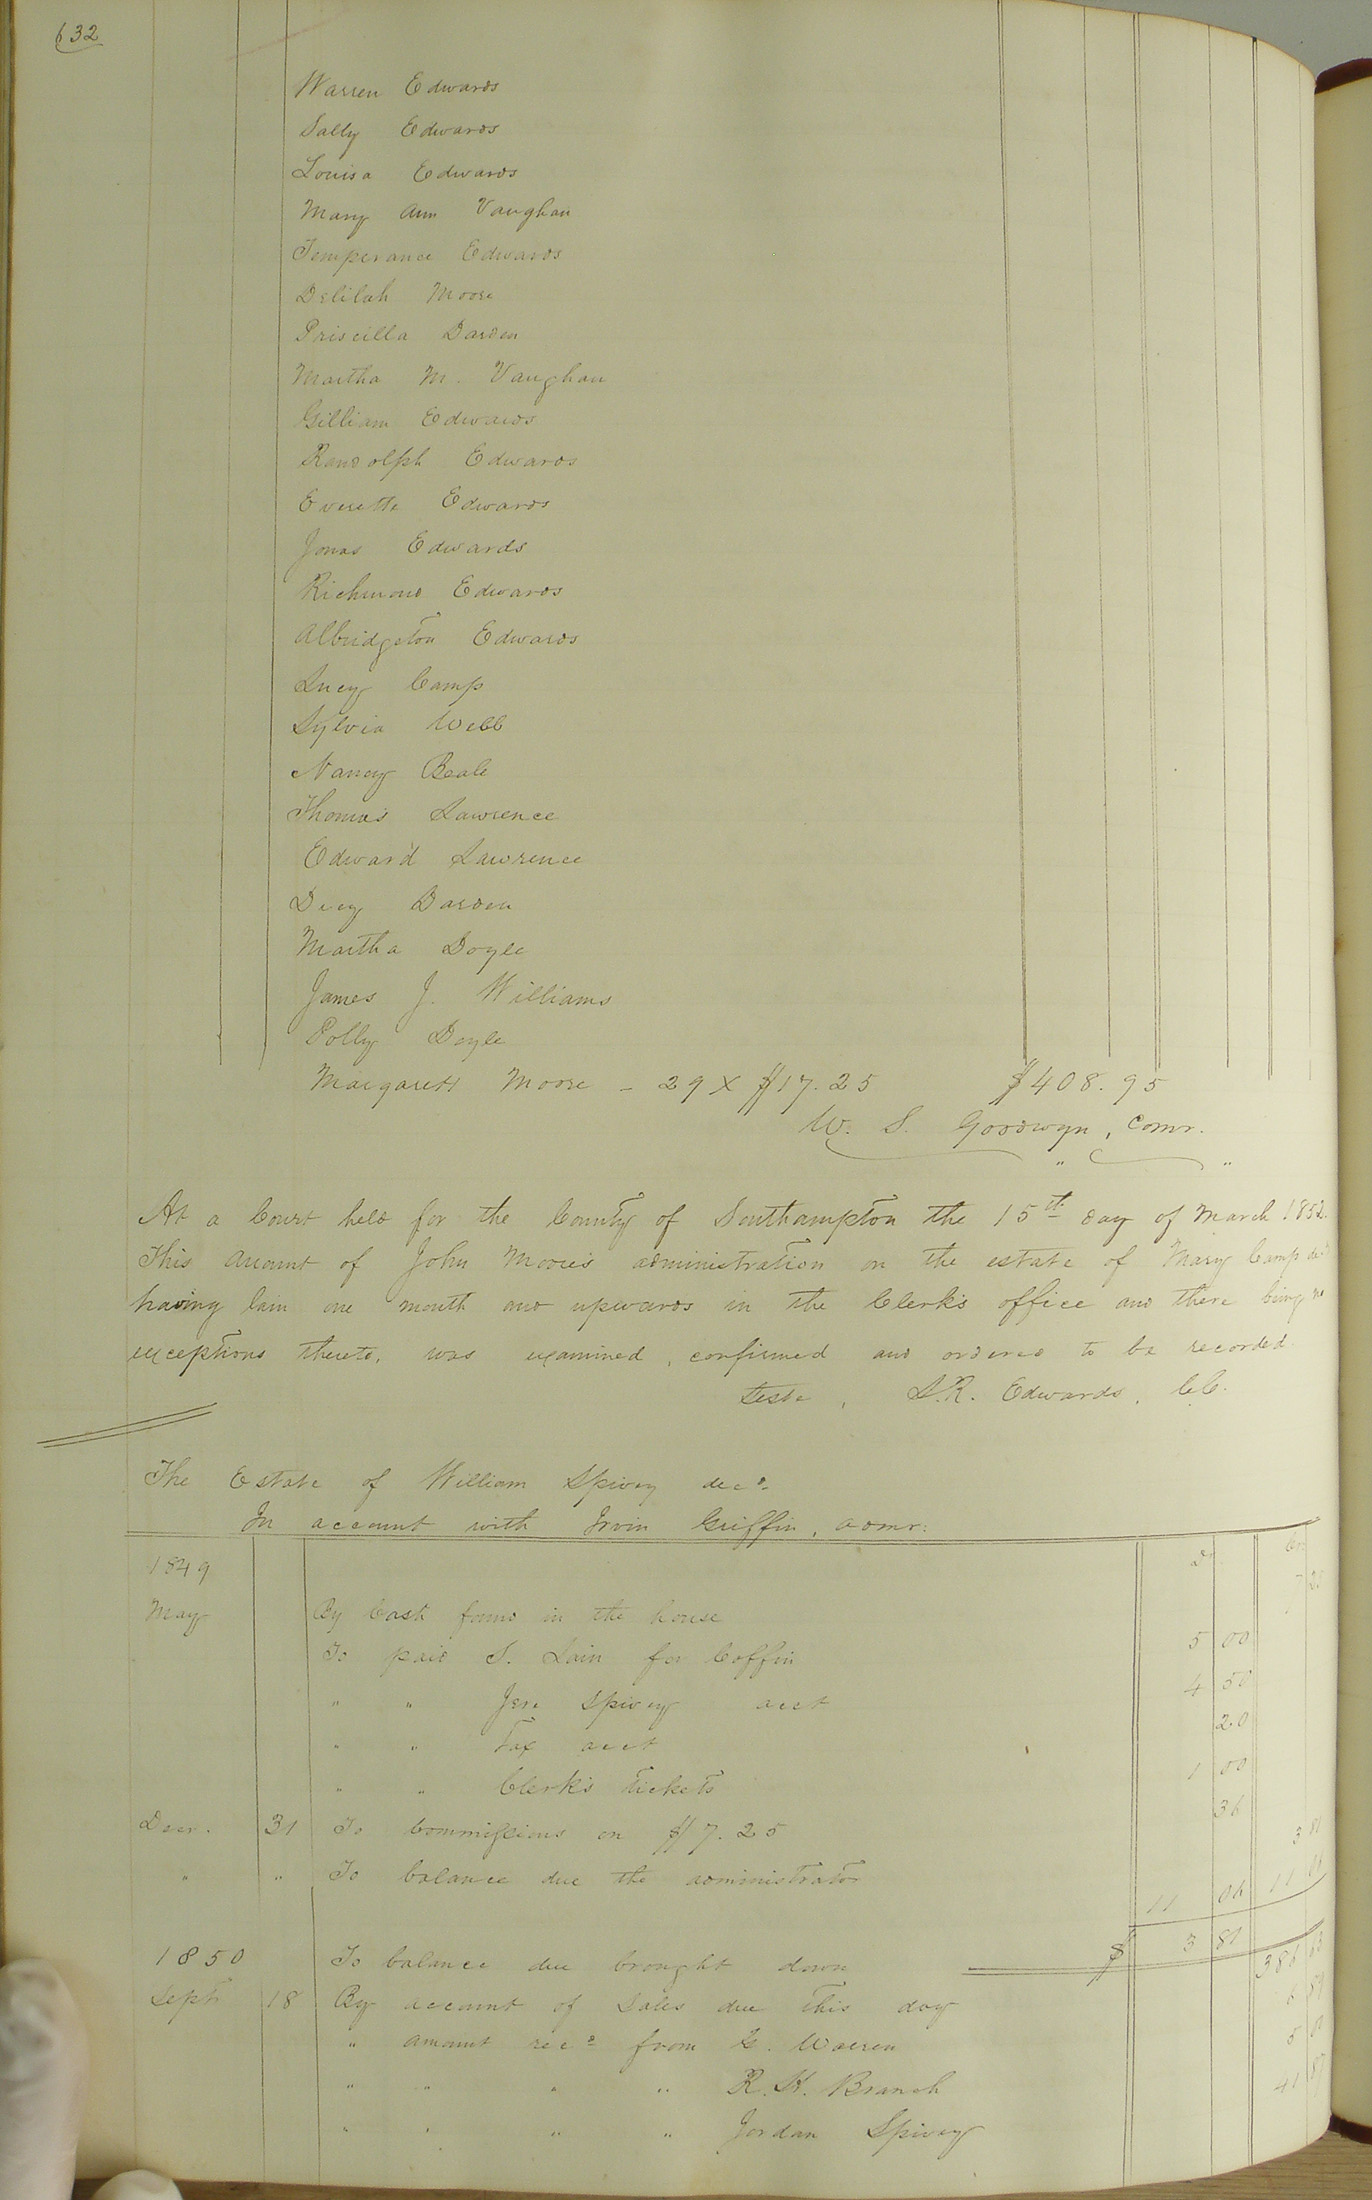 632
Warren Edwards
Sally Edwards
Louisa Edwards
Mary Ann Vaughan
Temperance Edwards
Delilah Moore
Priscilla Darden
Martha M. Vaughan
Gilliam Edwards
Randolph Edwards
Everette Edwards
Jonas Edwards
Richmond Edwards
Albridgeton Edwards
Lucy Camp
Sylvia Webb
Nancy Beale
Thomas Lawrence
Edward Lawrence
Dicy Darden
Martha Doyle
James J. Williams
Polly Doyle
Margarett Moore - 29 X $17.25 $408.95
W. S. Goodwyn, Comr.
At a Court held for the County of Southampton the 15th day of March 1852.
This account of John Moore's administration on the estate of Mary Camp decd
having lain one month and upwards in the Clerk's office and there being no
exceptions thereto, was examined, confirmed and ordered to be recorded
Teste, L.R. Edwards, C.C.
The Estate of William Spivey decd
In account with Irvin Griffin, admr.
1849 Dr Cr
May By Cash found in the house 7 25
To paid S. Lain for Coffin 5 00
" " Jere Spivey acct 4 50
" " Tax acct 20
" " Clerk's tickets 1 00
Decr. 31 To Commissions on $7.25 36
" " To balance due the administrator 3 81
11 06 11 06
1850 To balance due brought down $ 3 81
Sept 18 By account of Sales due this day 386 63
" amount recd from G. Warren
" " " " R. H. Branch
" " " " Jordan Spivey